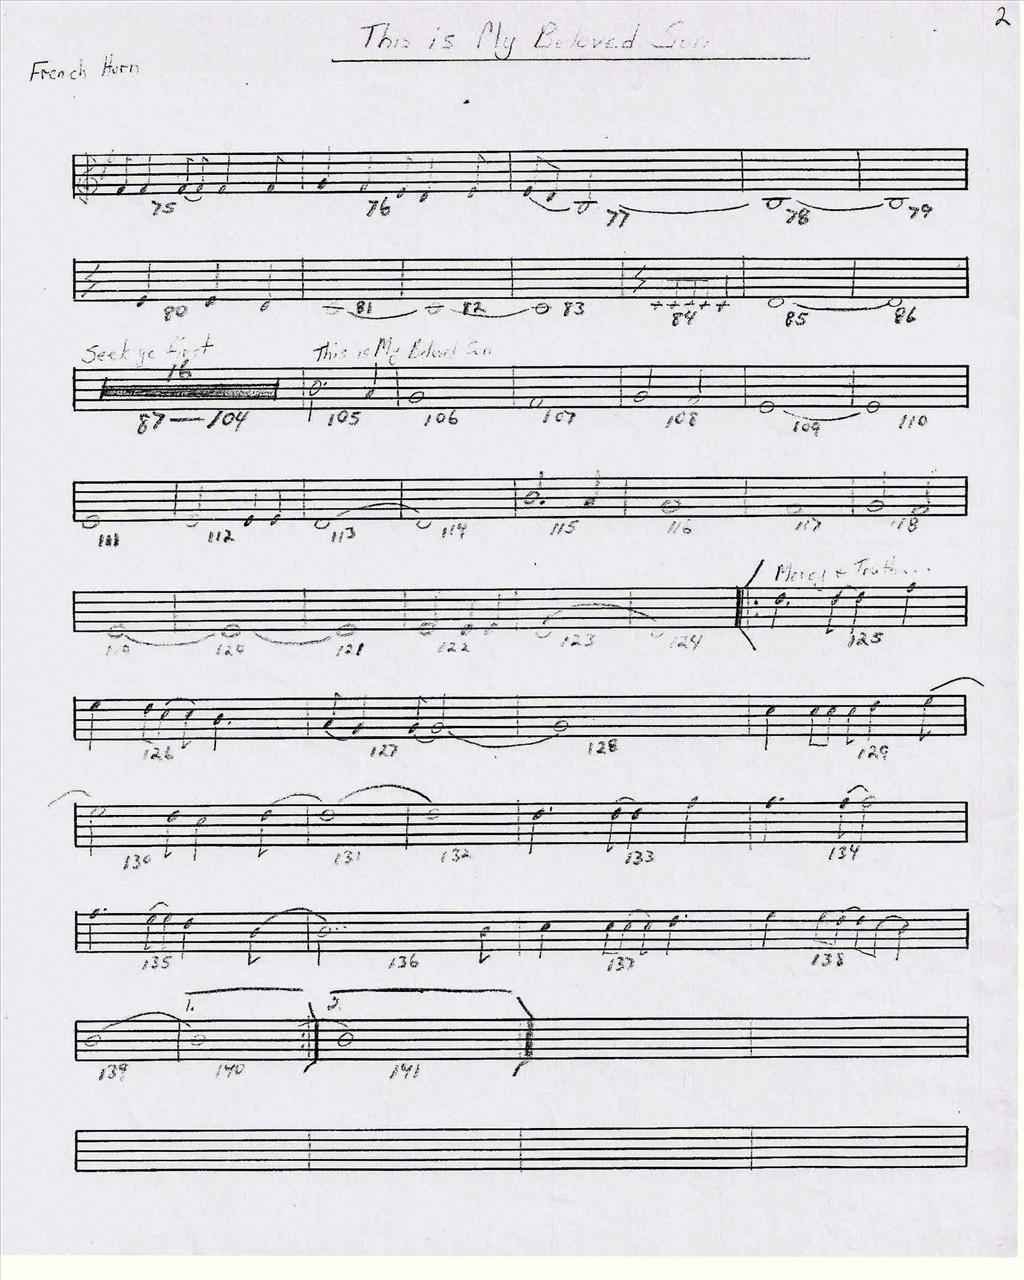 2
This is My Beloved Son
French Horn
75 76 77 78 79
80 81 82 83 84 85 86
Seek ye first This is My Beloved Son
16
87—104 105 106 107 108 109 110
111 112 113 114 115 116 117 118
Mercy + Truth...
119 120 121 122 123 124 125
126 127 128 129
130 131 132 133 134
135 136 137 138
1. 2.
139 140 141